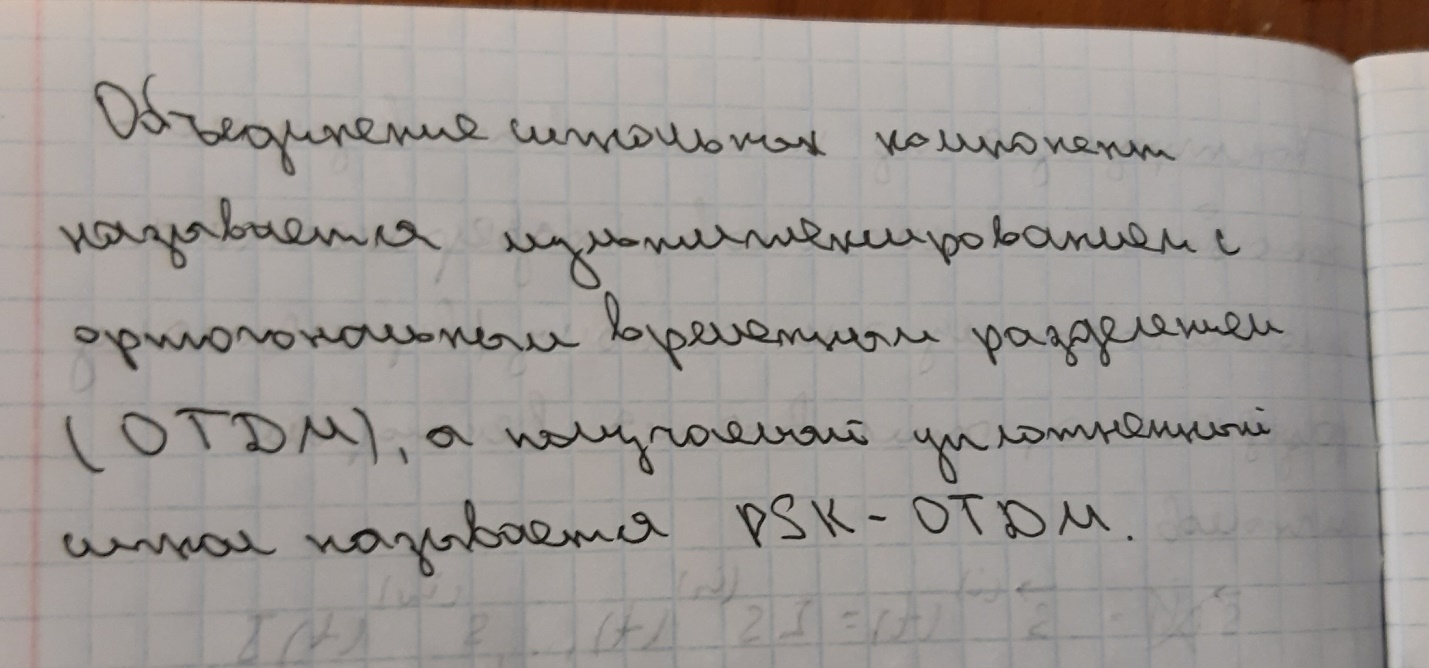 Объединение сигнальных компонент
называется мультиплексированием с
ортогональным временным разделением
(OTDM), а получаемый уплотненный
сигнал называется PSK-OTDM.